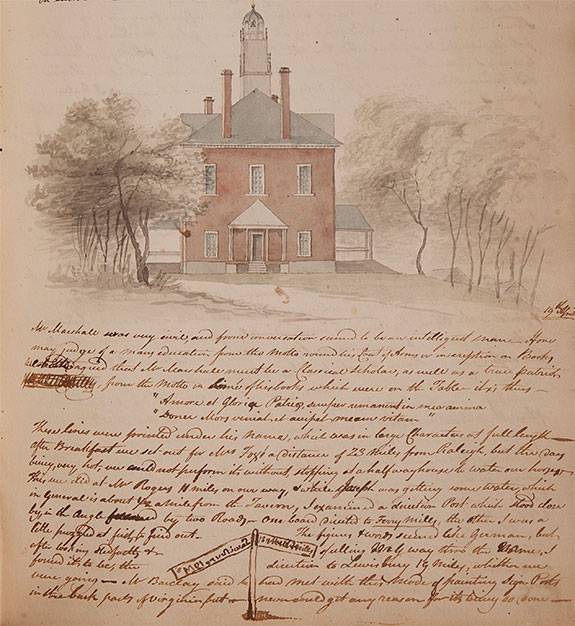 19th
Mr Marshall was very civil, and from conversation seemed to be an intelligent man. If one
may judge of a mans education from the Motto round his Coat of Arms or inscription on Books,
agreed that Mr Marshall must be a Classical Scholar, as well as a true patriot
from the Motto in some of his books which were on the Table it is thus
"Amore et Gloria Patria, semper remanent in mea anima
"Donec Mors veniat, et accipit meam vitam
These lines were printed under his Name, which was in large Characters at full length
after Breakfast we set out for Mrs a Distance of 23 Miles from Raleigh, but the day
being very hot, we could not perform it without stopping at a half way house to water our horses
This we did at Mr Rogers 11 miles on our way, & while Joseph was getting some water, which
in General is about ½ a mile from the Tavern, I examined a direction Post which stood close
by in the Angle by two Roads — one board directed to Ferry Mills, the other I was a
little puzzled at first to find out. The figures & words seemed like German, but,
after looking stedfastly & spelling It by way thro the Name, I
found it to be, the direction to Lewisburg 19 Miles, whither we
were going — Mr Barclay said he had met with this mode of painting Sign Posts
in the back parts of Virginia but never could get any reason for its being so done —